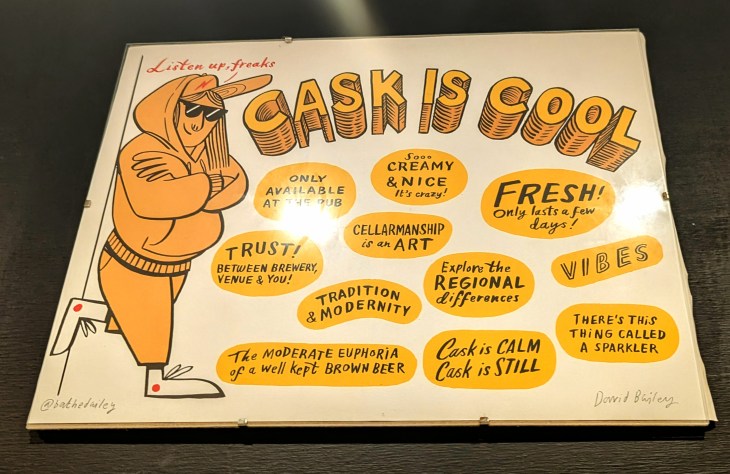 Listen up, freaks
CASK IS COOL
ONLY
AVAILABLE
AT THE PUB
Sooo
CREAMY
& NICE
It's crazy!
FRESH!
Only lasts a few
days!
CELLARMANSHIP
is an ART
TRUST!
BETWEEN BREWERY,
VENUE & YOU!
TRADITION
& MODERNITY
Explore the
REGIONAL
differences
VIBES
The MODERATE EUPHORIA
of a well kept BROWN BEER
Cask is CALM
Cask is STILL
THERE'S THIS
THING CALLED
A SPARKLER
David Bailey